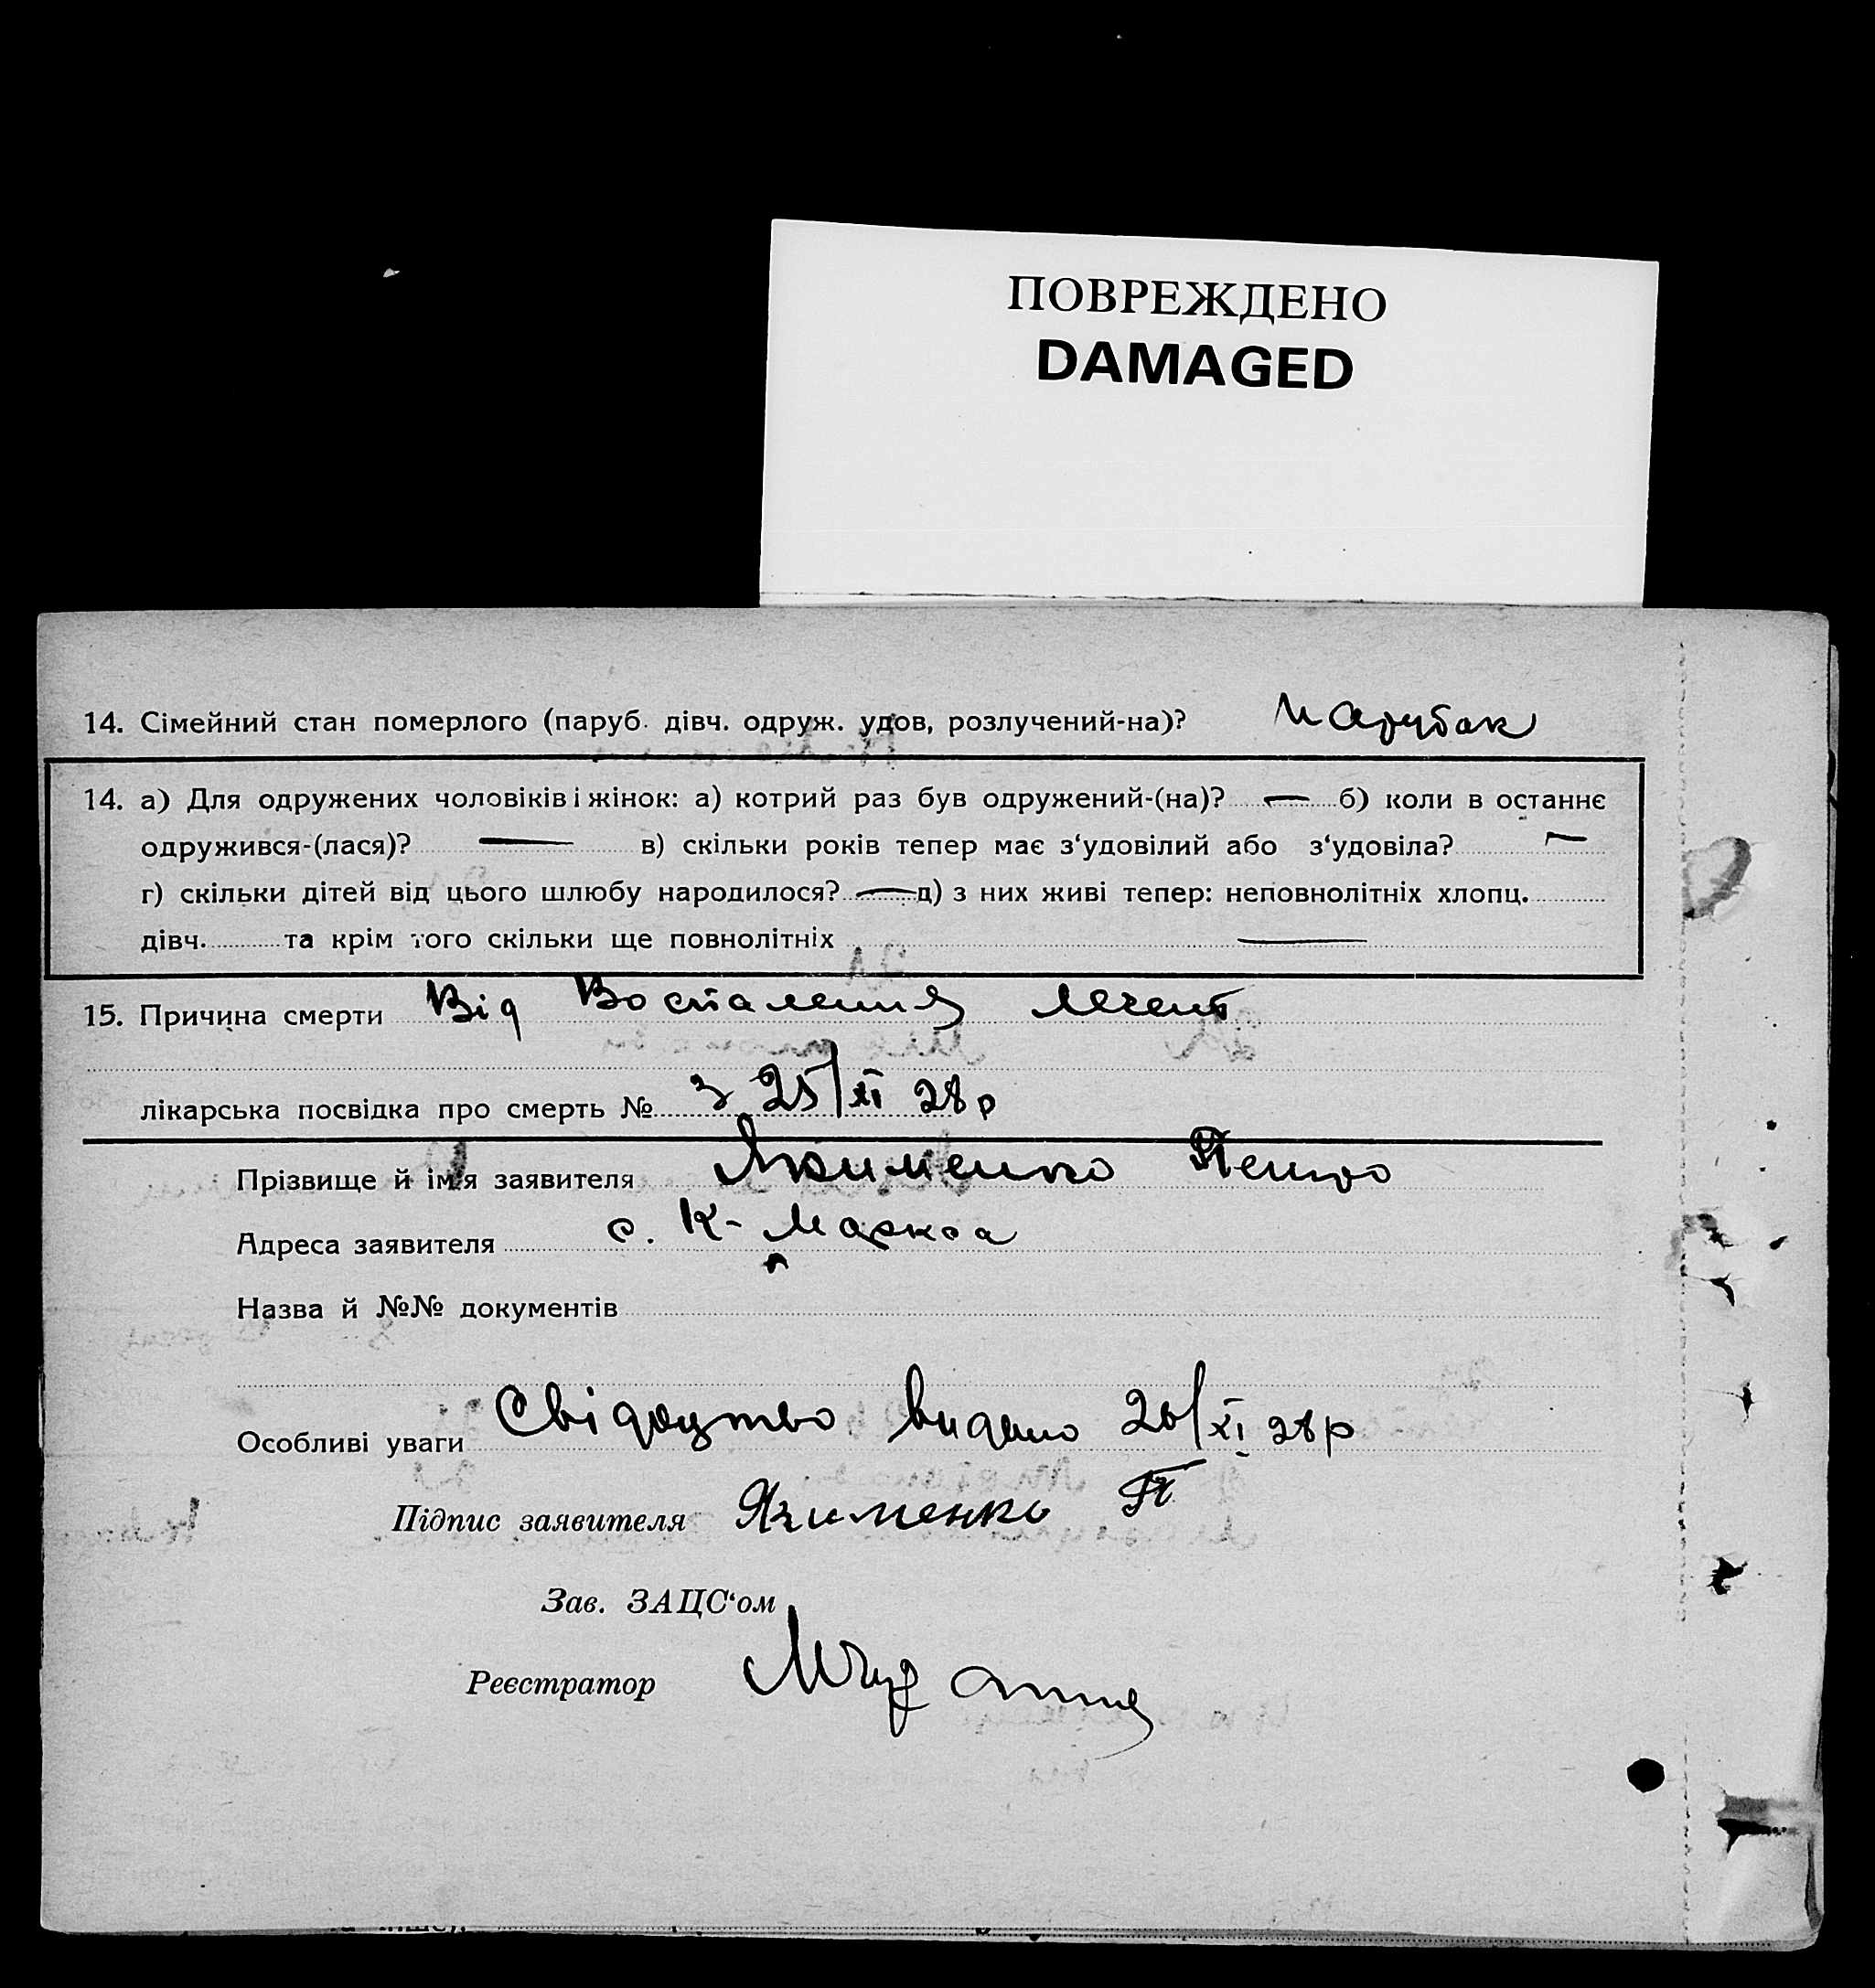 ПОВРЕЖДЕНО
DAMAGED
14. Сімейний стан померлого (паруб. дівч. одруж. удов, розлучений-на)? Парубак
14. а) Для одружених чоловіків і жінок: а) котрий раз був одружений-(на)? — б) коли в останнє
одружився-(лася)? — в) скільки років тепер має з‘удовілий або з‘удовіла? —
г) скільки дітей від цього шлюбу народилося? — д) з них живі тепер: неповнолітніх хлопц.
дівч. та крім того скільки ще повнолітніх —
15. Причина смерти Від Воспаления
лікарська посвідка про смерть № з 25/XI 28 р
Прізвище й ім‘я заявителя Якименко Петро
Адреса заявителя с. К-Маркса
Назва й №№ документів
Особливі уваги Свідоцтво видано 26/XI 28 р
Підпис заявителя Якименко П
Зав. ЗАЦС‘ом
Реєстратор